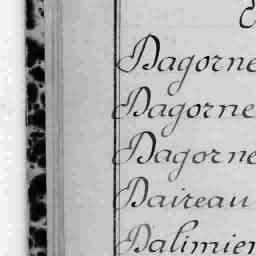 Dagorne
Dagorne
Dagorne
Daireau
Dalimier